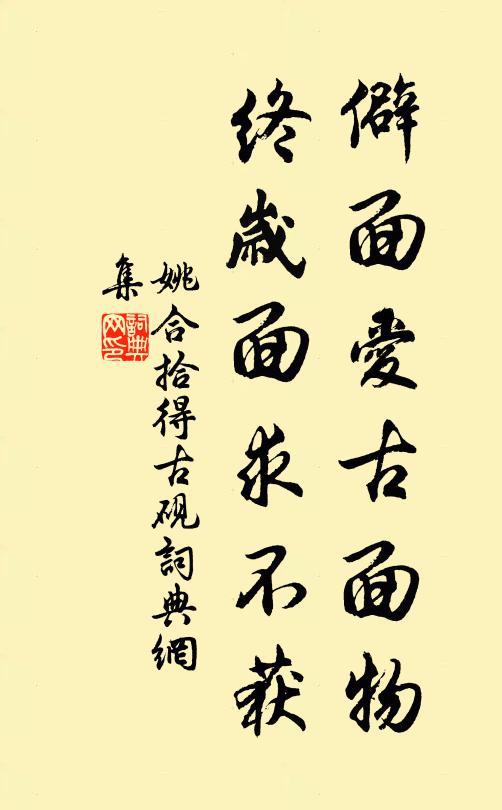 僻面愛古面物
終歲面求不获
姚合拾得古硯詞典網
集
詞典
网印